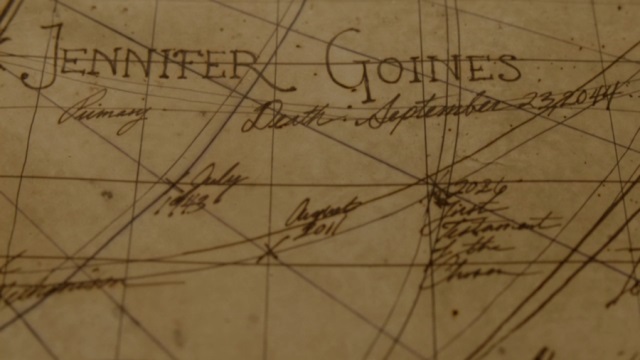 JENNIFER GOINES
Primary
Death: September 23, 2044
July
1943
August
2011
2026
First
Testament
of the